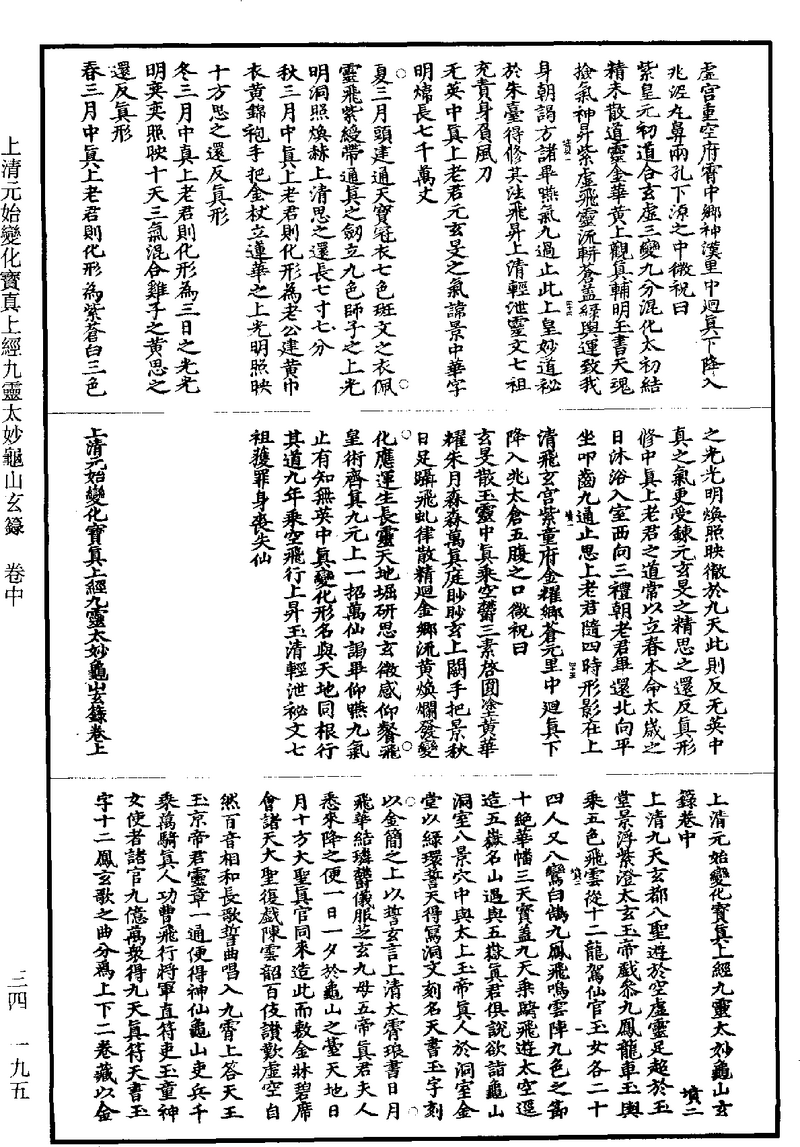 虛宮重空府霄中鄉神漢里中迴真下降入
兆泥丸鼻兩孔下源之中微祝曰
紫皇元初道合玄虛三變九分混化太初結
精未散道靈金華黃上觀真輔明玉書天魂
撿氣神昇紫虛飛靈流軿蒼蓋綠輿運致我
身朝謁方諸畢嚥氣九過止此上皇妙道祕
於朱臺得修其法飛昇上清輕泄靈文七祖
充責身負風刀
无英中真上老君元玄旻之氣諱景中華字
明煒長七千萬丈
夏三月頭建通天寶冠衣七色斑文之衣佩
靈飛紫綬帶通真之劒立九色師子之上光
明洞照煥赫上清思之還長七寸七分
秋三月中真上老君則化形為老公建黃巾
衣黃錦袍手把金杖立蓮華之上光明照映
十方思之還反真形
冬三月中真上老君則化形為三日之光光
明奕奕照映十天三氣混合雞子之黃思之
還反真形
春三月中真上老君則化形為紫蒼白三色
之光光明煥照映徹於九天此則反无英中
真之氣更受鍊元玄旻之精思之還反真形
修中真上老君之道常以立春本命太歲之
日沐浴入室西向三禮朝老君畢還北向平
坐叩齒九通止思上老君隨四時形影在上
清飛玄宮紫童府金耀鄉蒼元里中迴真下
降入兆太倉五腹之口微祝曰
玄旻散玉靈中真乘空鬱三素啓圓塗黃華
耀朱月森森萬真庭眇眇玄上闕手把景秋
日足躡飛虬律散精迴金鄉流黃煥爛發變
化應運生長靈天地堀研思玄微感仰礊飛
皇術齊其九元上一招萬仙謁畢仰嚥九氣
止有知無英中真變化形名與天地同根行
其道九年乘空飛行上昇玉清輕泄祕文七
祖獲罪身喪失仙
上清元始變化寶真上經九靈太妙龜山玄籙卷上
上清元始變化寶真上經九靈太妙龜山玄
籙卷中　墳二
上清九天玄都八聖遊於空虛靈足超於玉
堂景浮紫澄太玄玉帝戲參九鳳龍車玉輿
乘五色飛雲從十二龍駕仙官玉女各二十
四人又八鸞白鵠九鳳飛鳴雲陣九色之節
十絕華幡三天寶蓋九天乘騎飛遊太空遥
造五嶽名山過與五嶽真君俱說欲詣龜山
洞室八景穴中與太上玉帝真人於洞室金
堂以綠環誓天得寫洞文刻名天書玉字刻
以金簡之上以誓玄言上清太霄琅書日月
飛華結璘鬱儀服芝玄九母五帝真君夫人
悉來降之便一日一夕於龜山之臺天地日
月十方大聖真官同來造此而敷金牀碧席
會諸天大聖復戲陳雲韶百伎讃歎虛空自
然百音相和長歌誓曲唱入九霄上答天王
玉京帝君靈章一通便得神仙龜山吏兵千
乘萬騎真人功曹飛行將軍直符吏玉童神
女使者諸官九億萬衆得九天真符天書玉
字十二鳳玄歌之曲分爲上下二卷藏以金
上清元始變化寶真上經九靈太妙龜山玄籙　卷中
三四　一九五